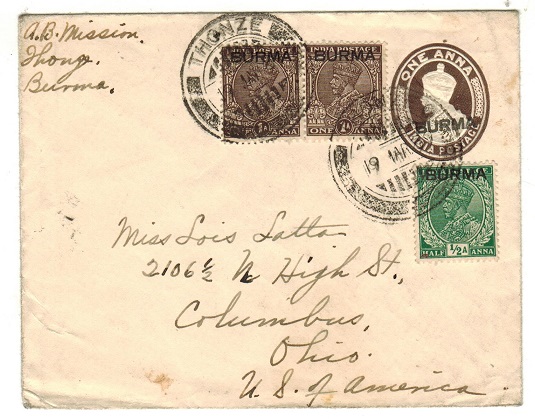 A.B. Mission.
Thonze
Burma.
THONZE
INDIA POSTAGE
BURMA
ONE 1A ANNA
INDIA POSTAGE
BURMA
ONE 1A ANNA
ONE ANNA
BURMA
INDIA POSTAGE
19 JAN
BURMA
HALF ½A ANNA
Miss Lois Latta
2106½ N High St.,
Columbus,
Ohio.
U.S. of America.